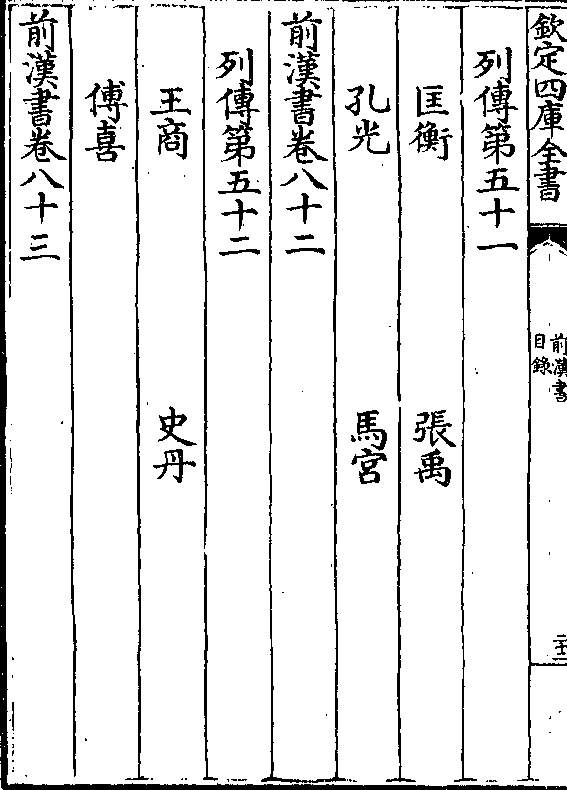 欽定四庫全書
前漢書
目錄
列傳第五十一
匡衡 張禹
孔光 馬宮
前漢書卷八十二
列傳第五十二
王商 史丹
傅喜
前漢書卷八十三